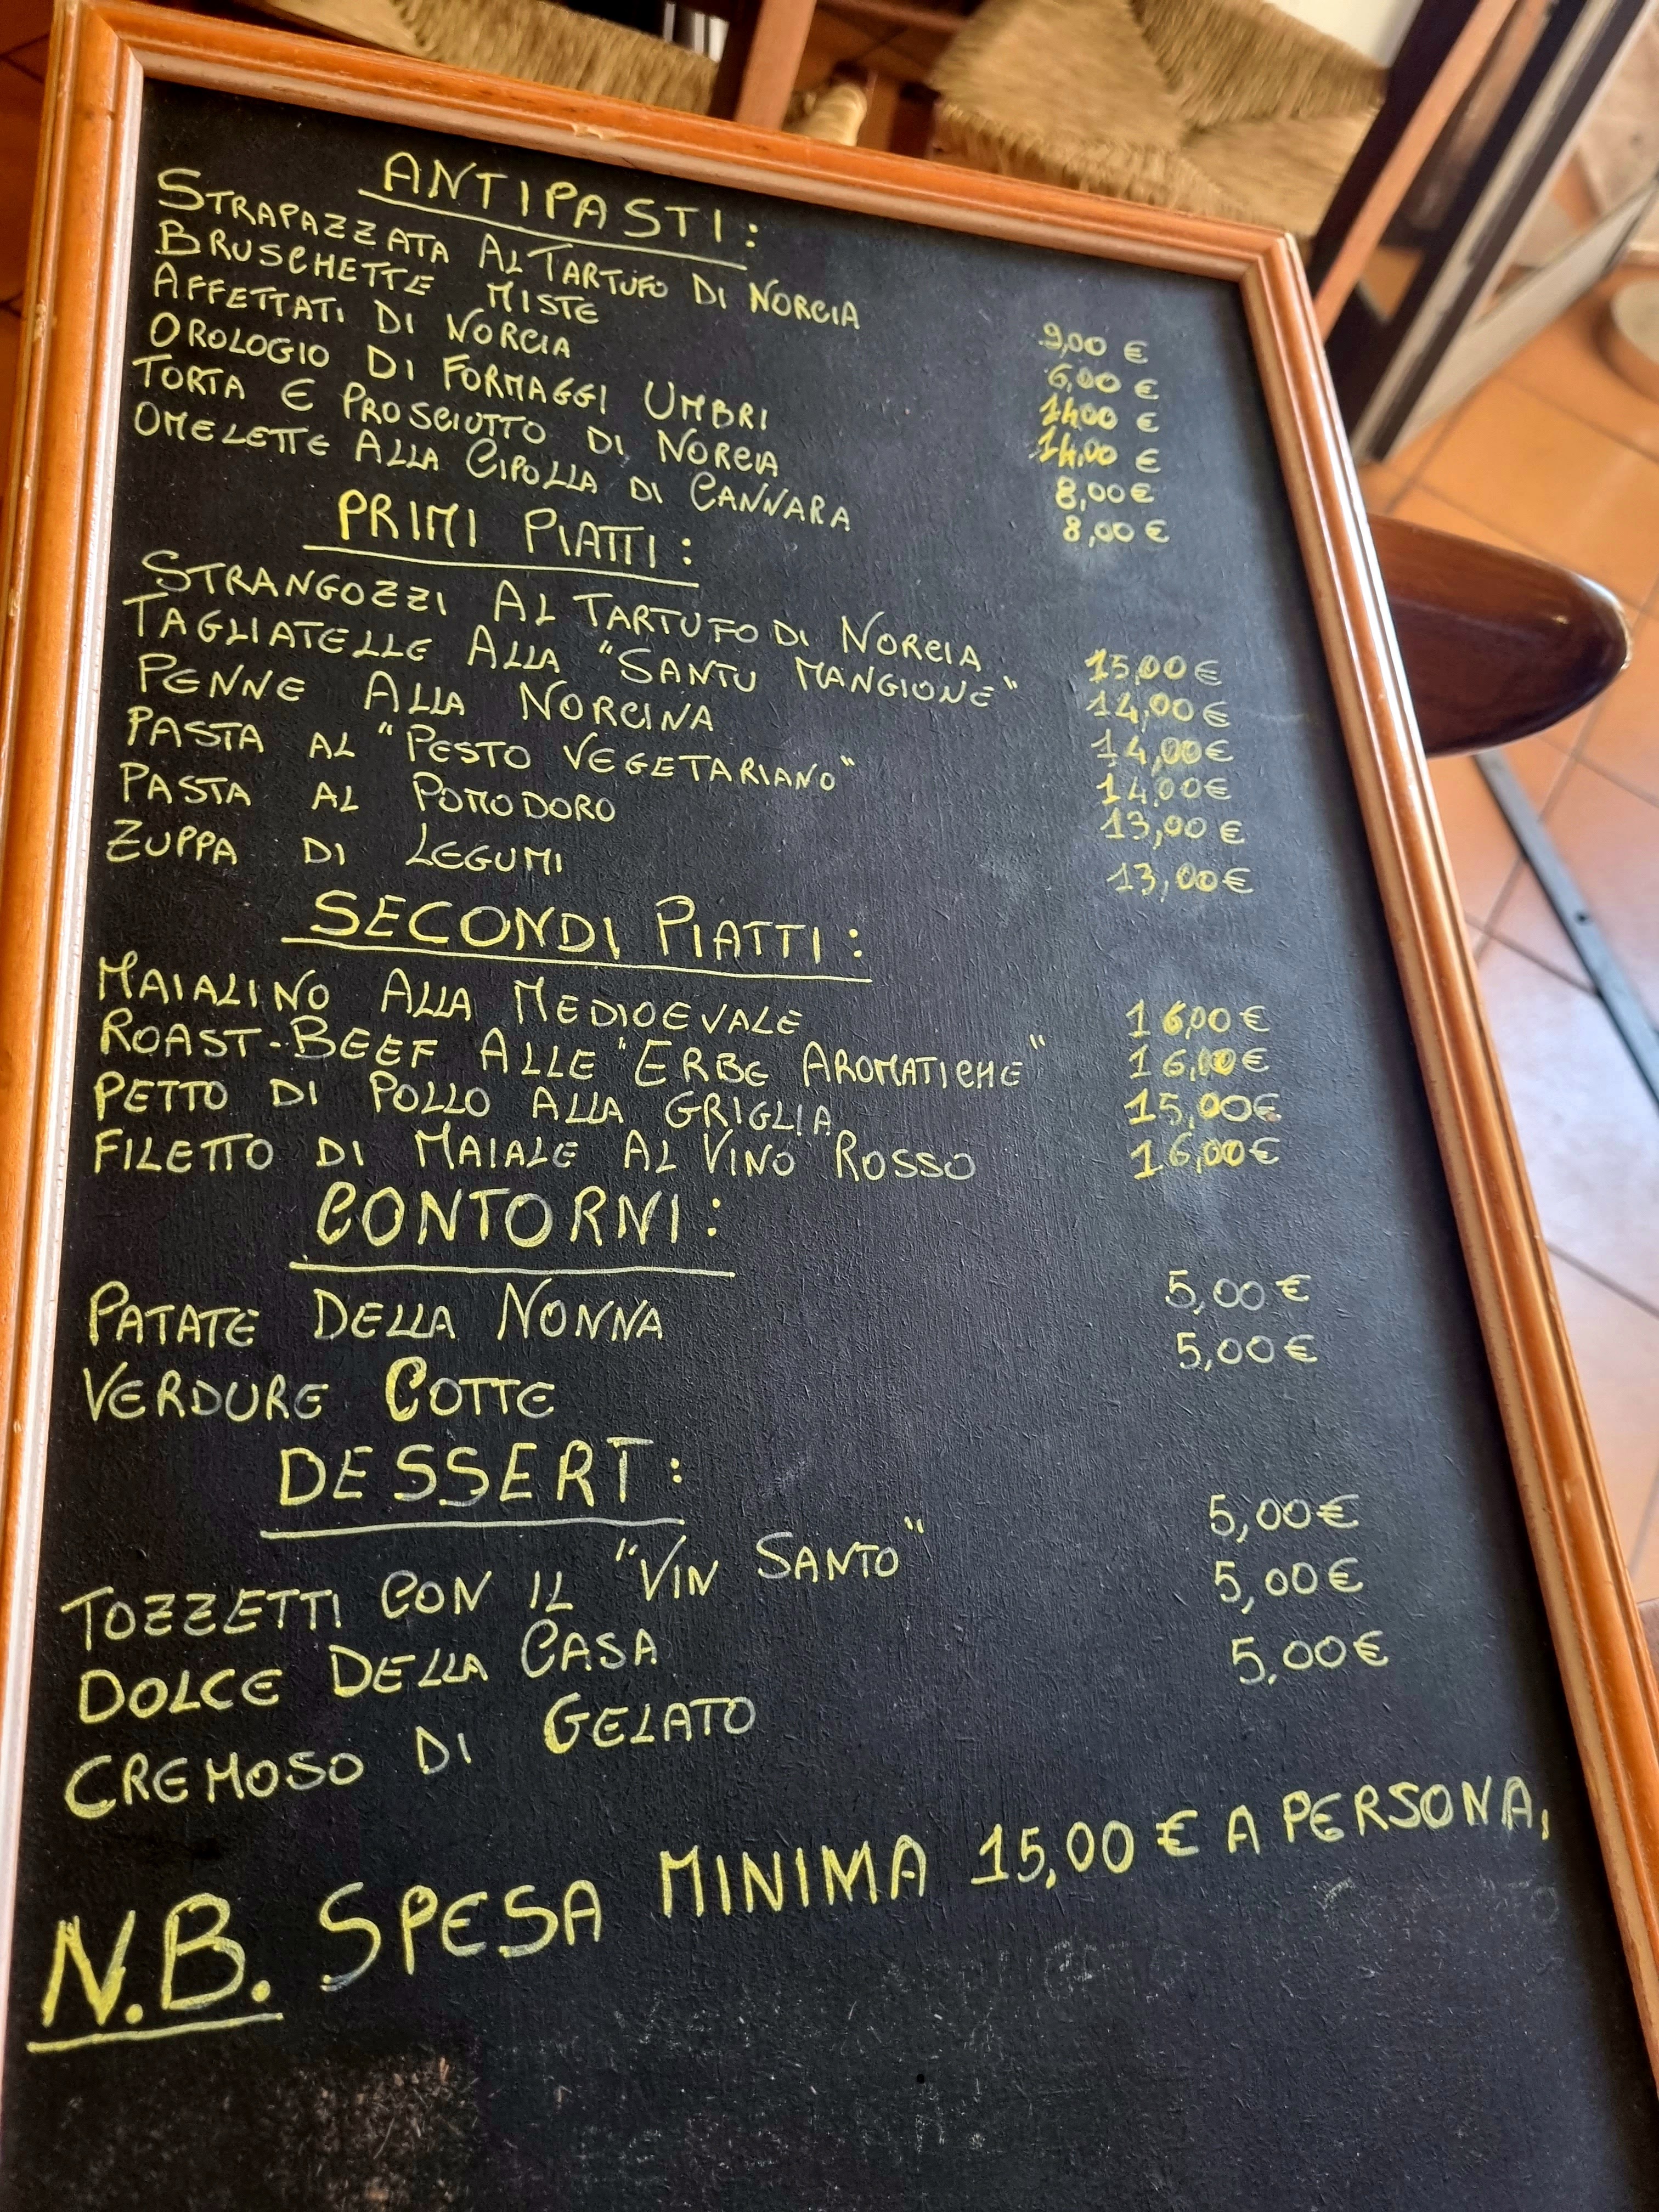 ANTIPASTI:
STRAPAZZATA AL TARTUFO DI NORCIA 9,00 €
BRUSCHETTE MISTE 6,00 €
AFFETTATI DI NORCIA 14,00 €
OROLOGIO DI FORMAGGI UMBRI 14,00 €
TORTA E PROSCIUTTO DI NORCIA 8,00 €
OMELETTE ALLA CIPOLLA DI CANNARA 8,00 €
PRIMI PIATTI:
STRANGOZZI AL TARTUFO DI NORCIA 15,00 €
TAGLIATELLE ALLA "SANTU MANGIONE" 14,00 €
PENNE ALLA NORCINA 14,00 €
PASTA AL "PESTO VEGETARIANO" 14,00 €
PASTA AL POMODORO 13,00 €
ZUPPA DI LEGUMI 13,00 €
SECONDI PIATTI:
MAIALINO ALLA MEDIOEVALE 16,00 €
ROAST-BEEF ALLE "ERBE AROMATICHE" 16,00 €
PETTO DI POLLO ALLA GRIGLIA 15,00 €
FILETTO DI MAIALE AL VINO ROSSO 16,00 €
CONTORNI:
PATATE DELLA NONNA 5,00 €
VERDURE COTTE 5,00 €
DESSERT:
TOZZETTI CON IL "VIN SANTO" 5,00 €
DOLCE DELLA CASA 5,00 €
CREMOSO DI GELATO 5,00 €
N.B. SPESA MINIMA 15,00 € A PERSONA,